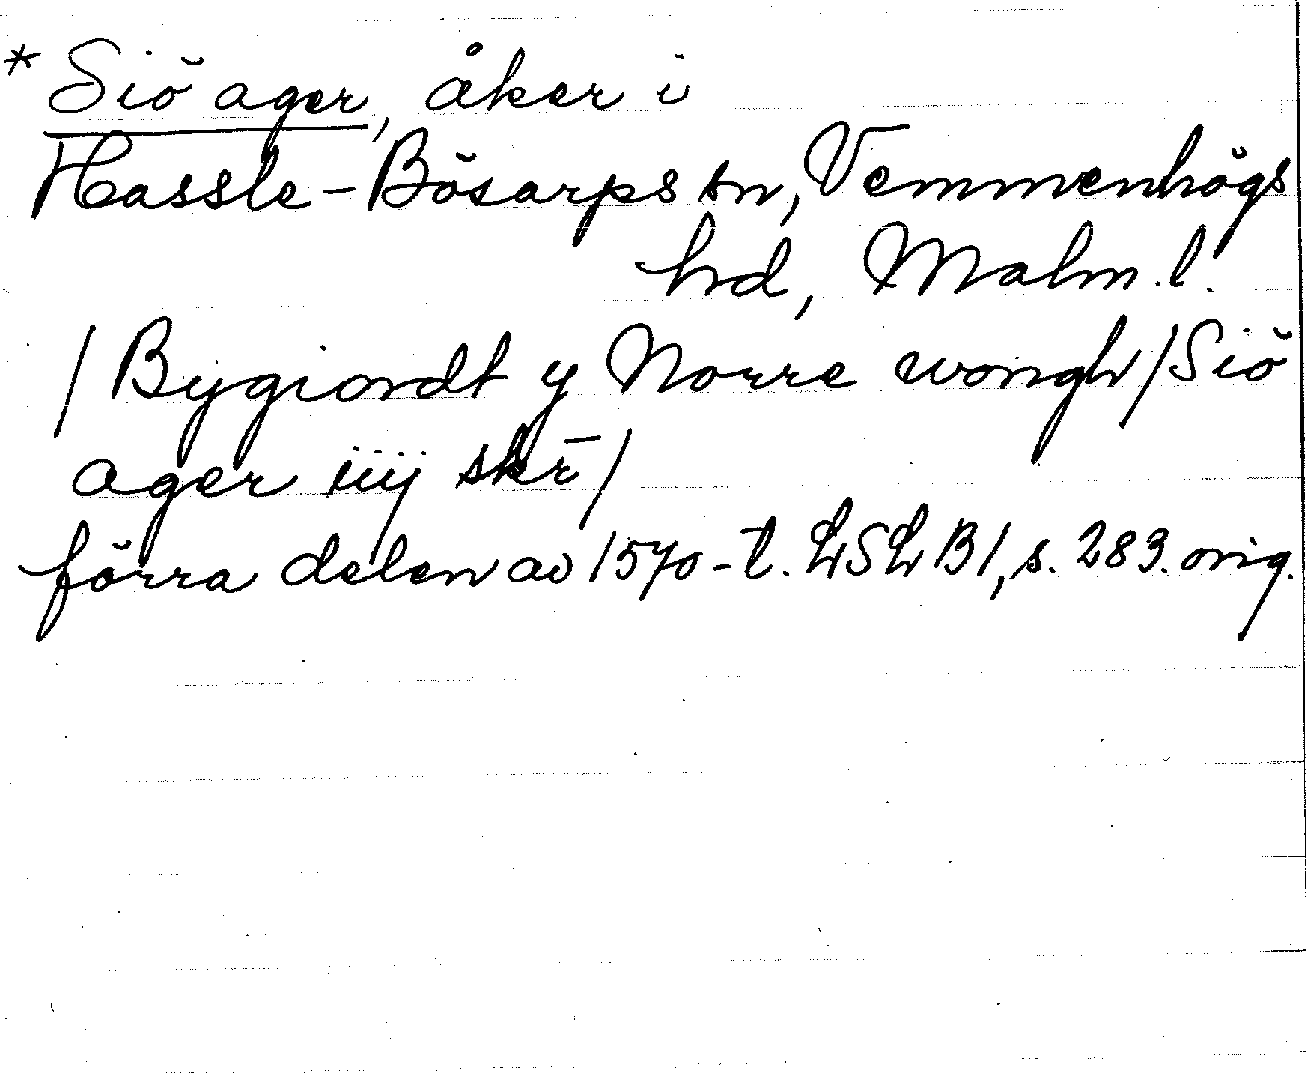 * Siö ager, åker i
Hassle-Bösarps sn, Vemmenhögs
hd, Malm.l.
/Bygiordt y Norre wongh/Siö
ager iiij skr̄/
förra delen av 1570-t. LSLB1, s. 283. orig.